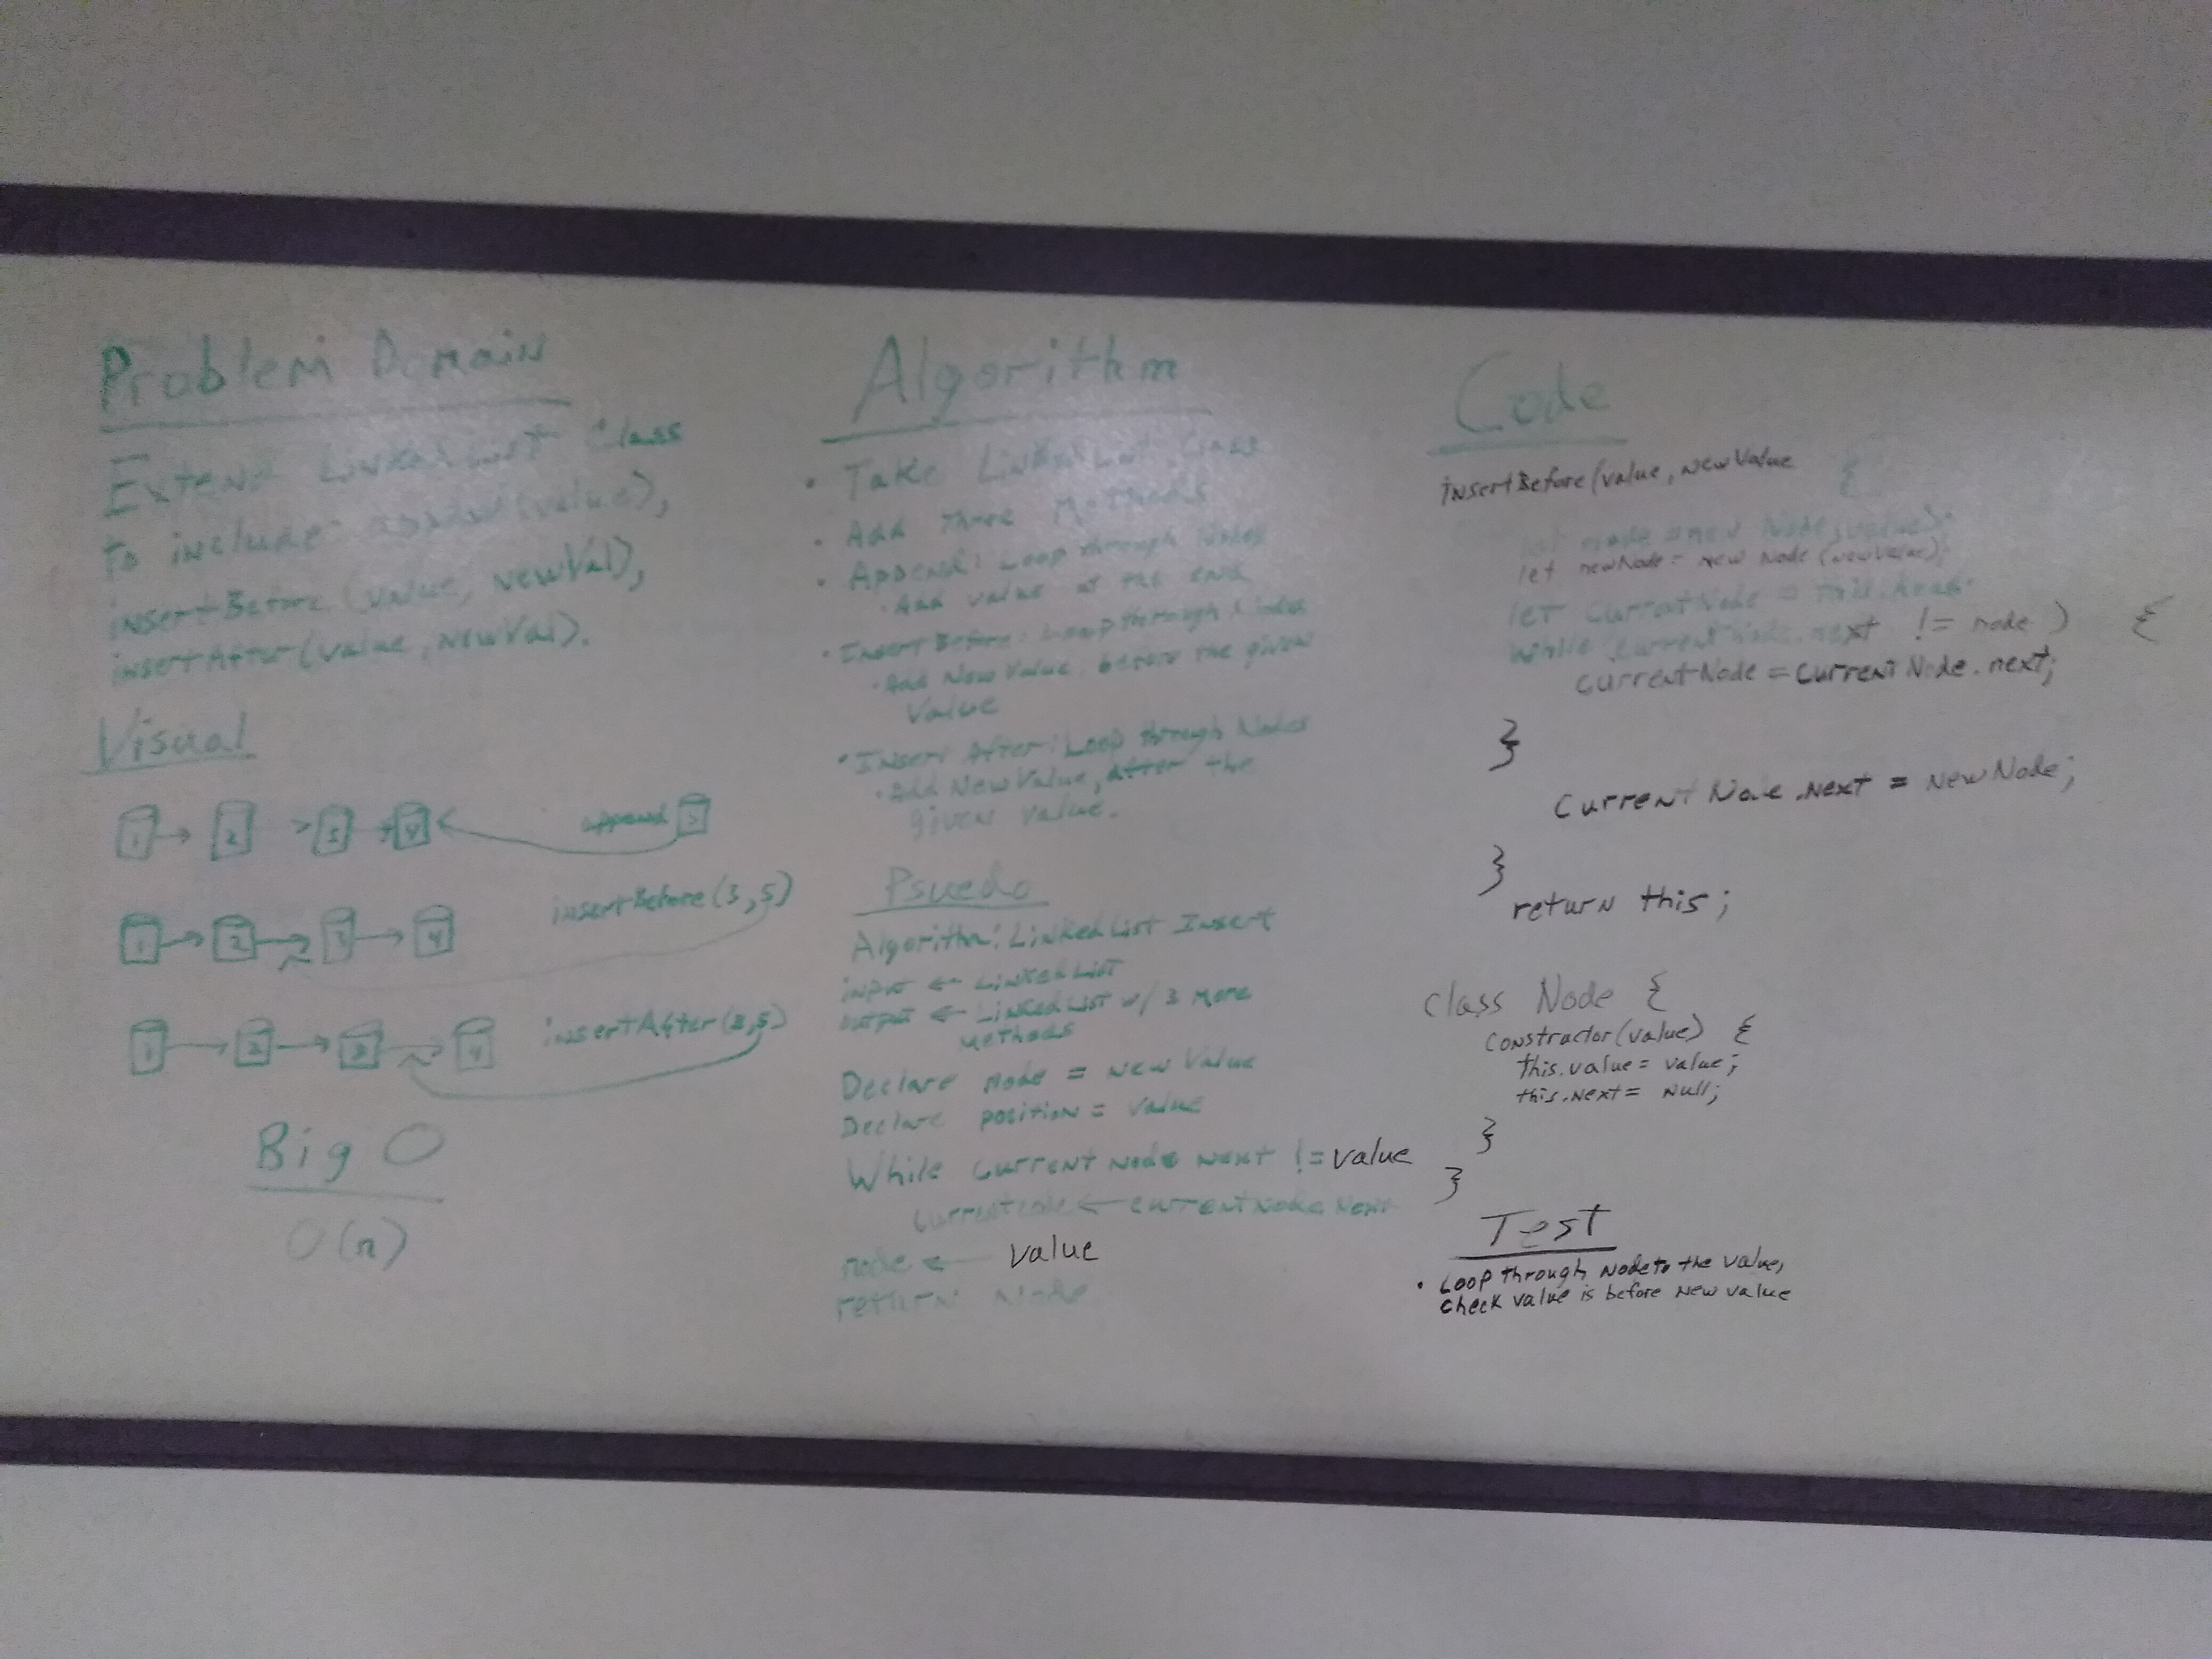 Problem Domain
Extend LinkedList Class
to include append(value),
insertBefore(value, newVal),
insertAfter(value, newVal).
Visual
1 → 2 > 3 → 4 append 5
1 → 2 → 3 → 4 insertBefore(3,5)
1 → 2 → 3 → 4 insertAfter(3,5)
Big O
O(n)
Algorithm
• Take LinkedList Class
• Add three Methods
• Append: Loop through Nodes
• Add value at the end
• Insert Before: Loop through Nodes
• Add New Value, before the given
Value
• Insert After: Loop through Nodes
• Add New Value, after the
given value.
Psuedo
Algorithm: LinkedList Insert
input ← LinkedList
output ← LinkedList w/ 3 More
Methods
Declare Node = New Value
Declare position = value
While current Node Next != value
← currentNode Next
node ← value
return Node
Code
insertBefore(value, newValue {
let node = new Node(value);
let newNode = new Node(newValue);
let currentNode = this.head;
while (currentNode.next != node) {
currentNode = currentNode.next;
}
currentNode.next = newNode;
}
return this;
class Node {
constructor(value) {
this.value = value;
this.next = null;
}
}
Test
• Loop through Node to the value,
check value is before new value